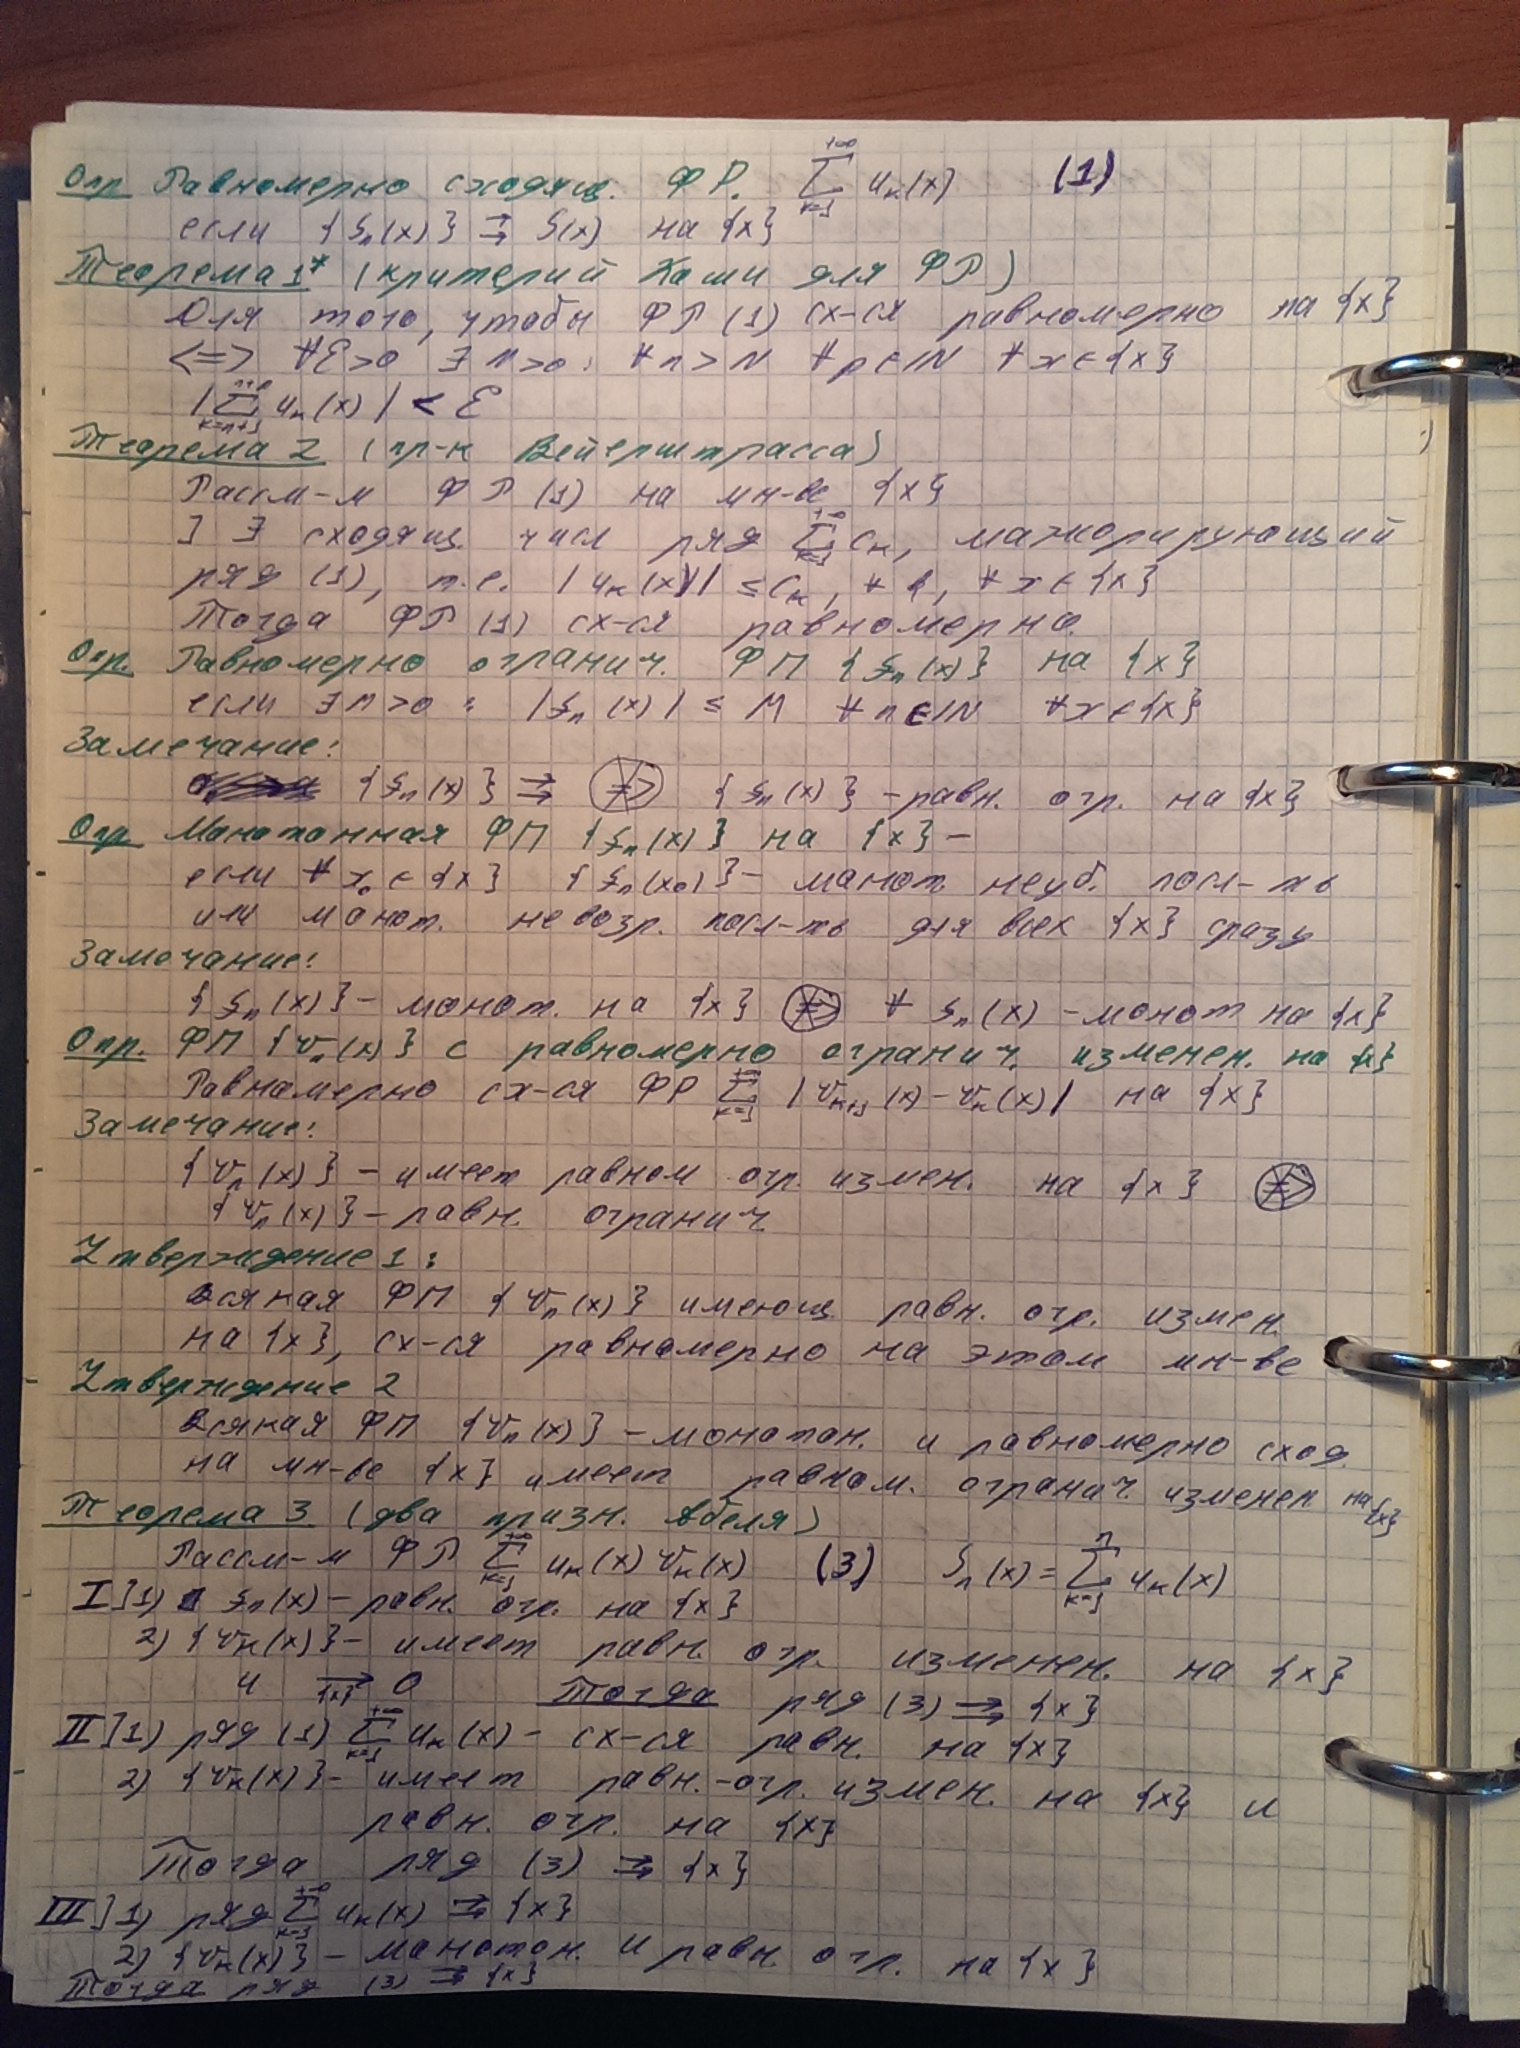 Опр Равномерно сходящ. ФР. $\sum_{k=1}^{+\infty} u_k(x)$ (1)
если {Sₙ(x)} ⇉ S(x) на {x}
Теорема 1* (критерий Коши для ФР)
Для того, чтобы ФР (1) сх-ся равномерно на {x}
<=> ∀ℰ>0 ∃ N>0: ∀ n>N ∀ p∈IN ∀ x∈{x}
$|\sum_{k=n+1}^{n+p} u_k(x)| < ℰ$
Теорема 2 (пр-к Вейерштрасса)
Рассм-м ФР (1) на мн-ве {x}
] ∃ сходящ. числ ряд $\sum_{k=1}^{+\infty} c_k$, мажорирующий
ряд (1), т.е. |uₖ(x)| ≤ cₖ, ∀ k, ∀ x∈{x}
Тогда ФР (1) сх-ся равномерно.
Опр. Равномерно огранич. ФП {fₙ(x)} на {x}
если ∃ M>0 : |fₙ(x)| ≤ M ∀ n∈IN ∀x∈{x}
Замечание:
{fₙ(x)} ⇉ ⇏ {fₙ(x)} - равн. огр. на {x}
Опр Монотонная ФП {fₙ(x)} на {x} -
если ∀ x₀∈{x} {fₙ(x₀)} - монот. неуб. посл-ть
или монот. невозр. посл-ть для всех {x} сразу
Замечание:
{fₙ(x)} - монот. на {x} ⇏ ∀ fₙ(x) - монот на {x}
Опр. ФП {vₙ(x)} с равномерно огранич. изменен. на {x}
Равномерно сх-ся ФР $\sum_{k=1}^{+\infty} |v_{k+1}(x) - v_k(x)|$ на {x}
Замечание:
{vₙ(x)} - имеет равном огр. измен. на {x} ⇏
{vₙ(x)} - равн. огранич
Утверждение 1:
всякая ФП {vₙ(x)} имеющ равн. огр. измен.
на {x}, сх-ся равномерно на этом мн-ве
Утверждение 2
всякая ФП {vₙ(x)} - монотон. и равномерно сход.
на мн-ве {x} имеет равном. огранич. изменен на {x}
Теорема 3 (два призн. Абеля)
Рассм-м ФР $\sum_{k=1}^{+\infty} u_k(x) v_k(x)$ (3) $S_n(x) = \sum_{k=1}^{n} u_k(x)$
I ] 1) Sₙ(x) - равн. огр. на {x}
2) {vₖ(x)} - имеет равн. огр. изменен. на {x}
и $\underset{\{x\}}{⇉}$ 0 Тогда ряд (3) ⇉ {x}
II ] 1) ряд (1) $\sum_{k=1}^{+\infty} u_k(x)$ - сх-ся равн. на {x}
2) {vₖ(x)} - имеет равн.-огр. измен. на {x} и
равн. огр. на {x}
Тогда ряд (3) ⇉ {x}
III ] 1) ряд $\sum_{k=1}^{+\infty} u_k(x)$ ⇉ {x}
2) {vₖ(x)} - монотон. и равн. огр. на {x}
Тогда ряд (3) ⇉ {x}